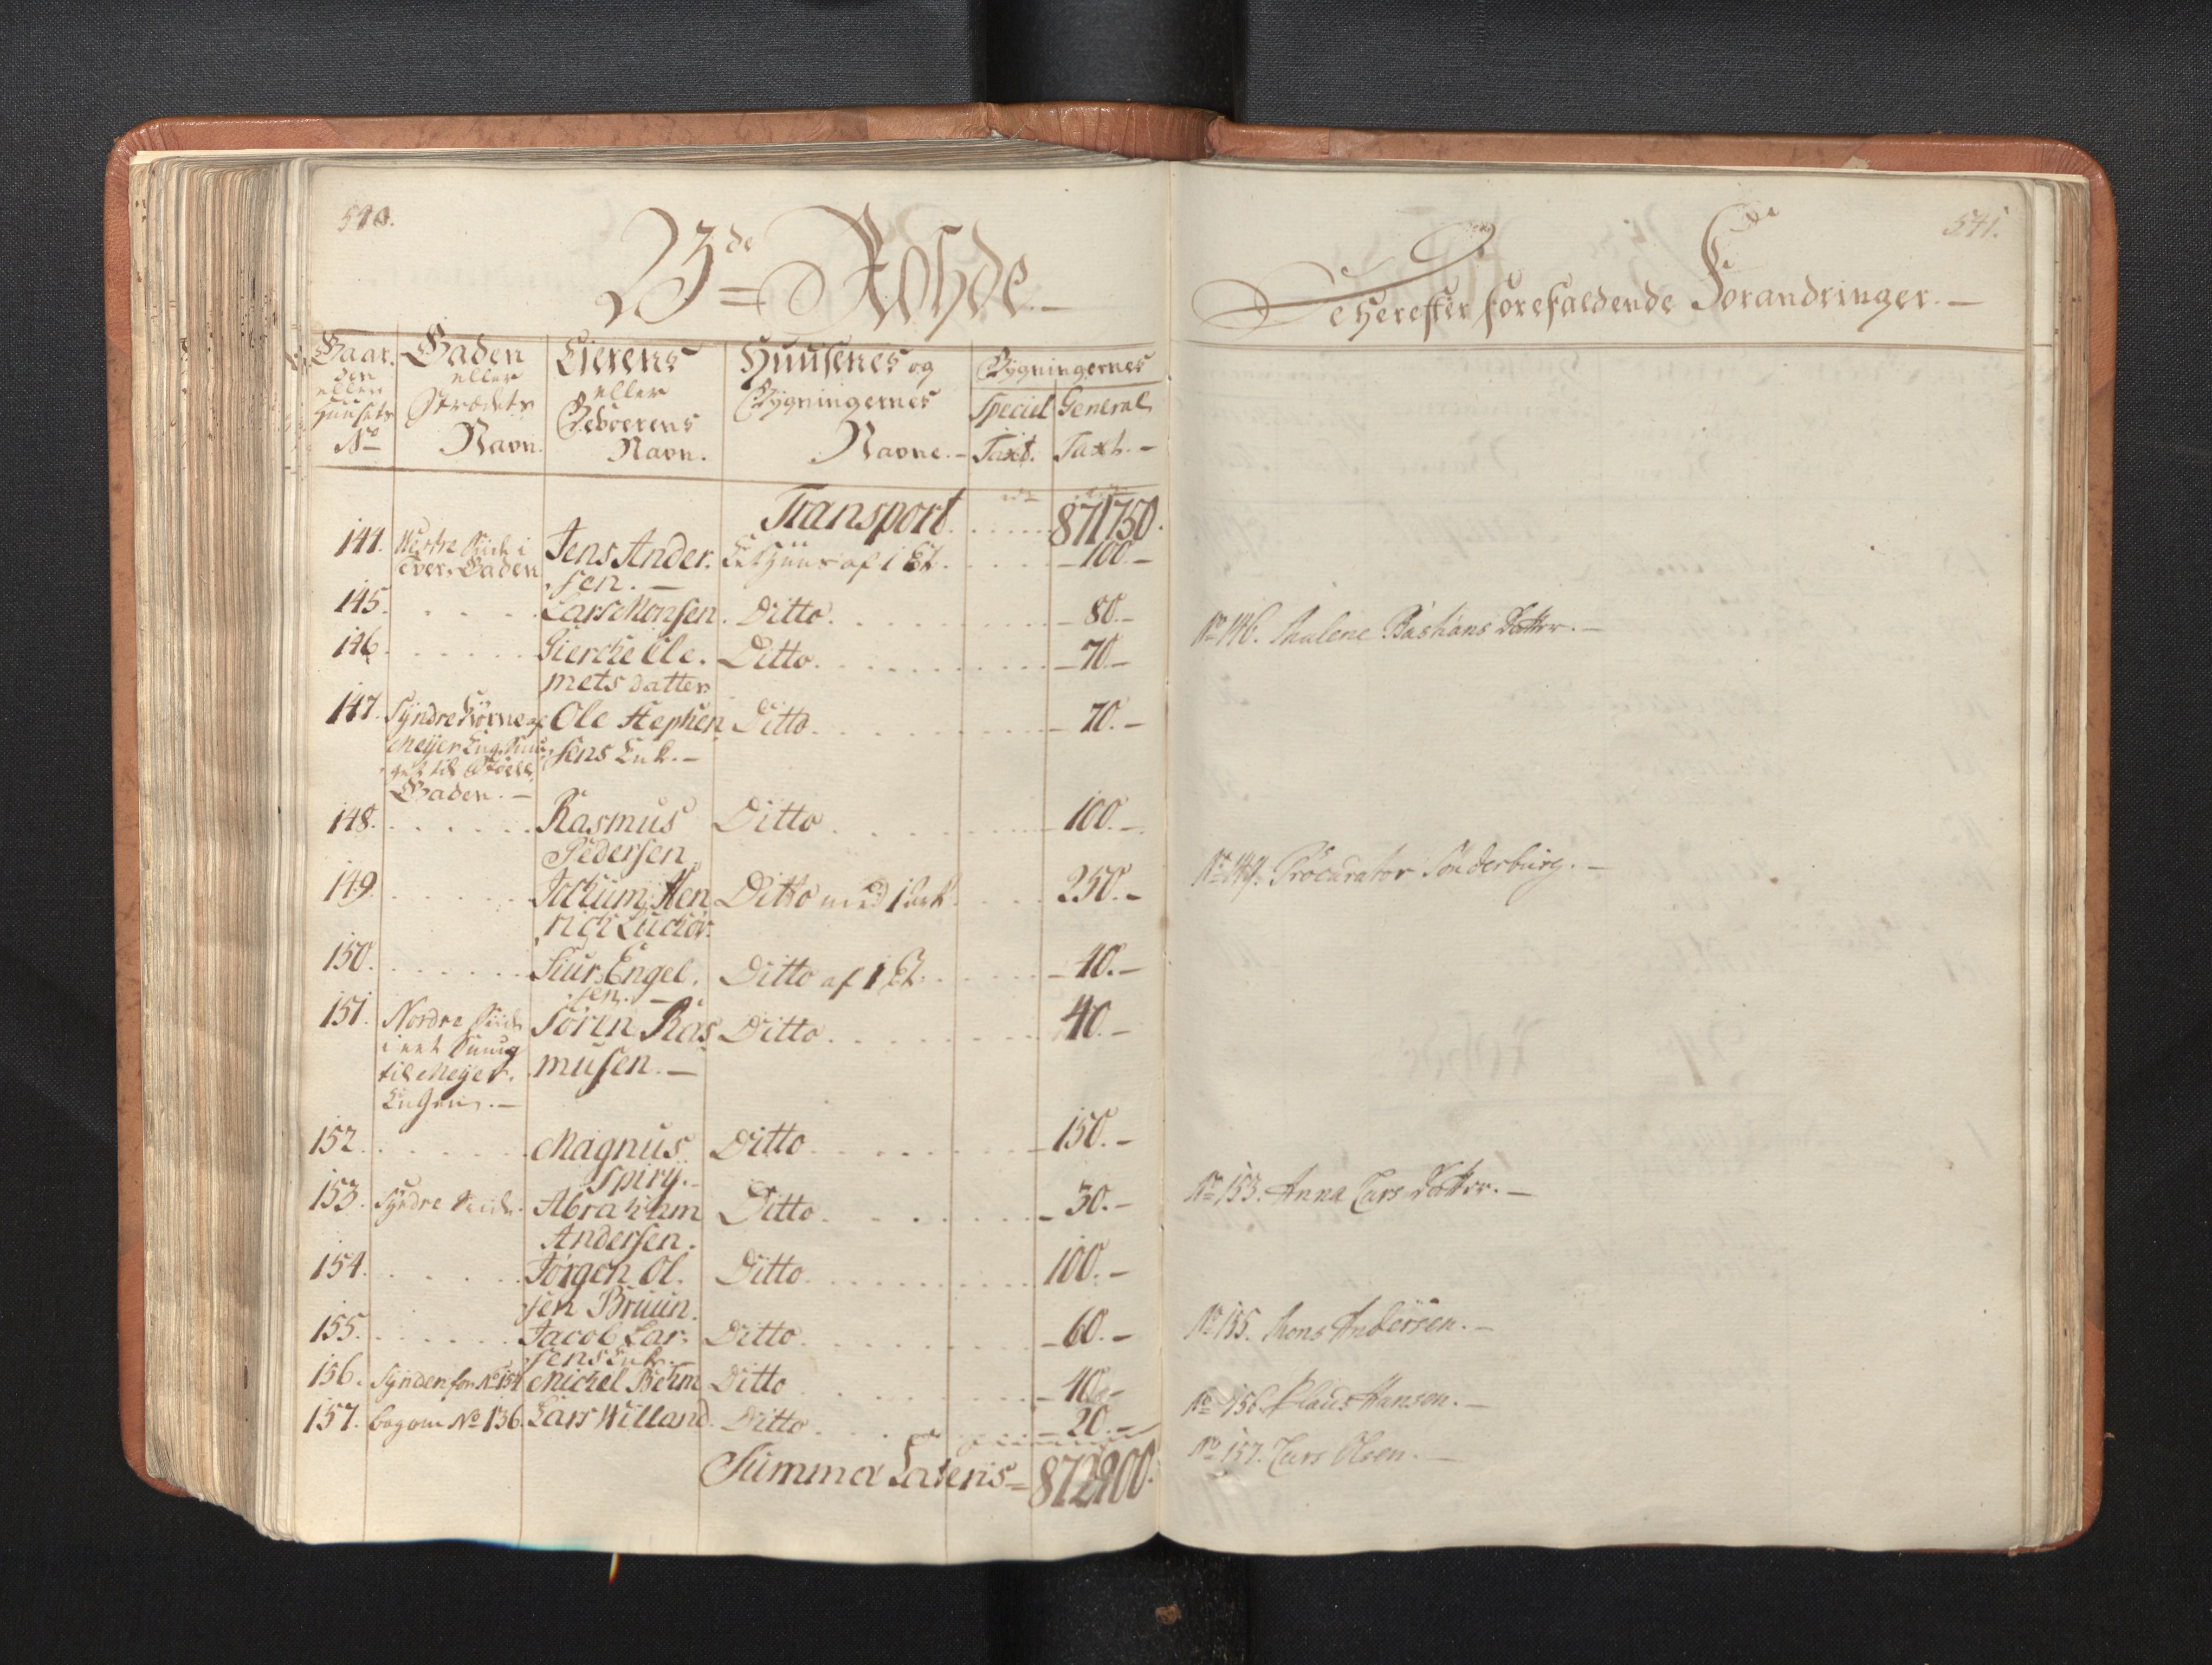 540.
23de Rohde.
Gaarden eller Huusets No
Gaden eller Strædets Navn.
Eierens eller Beboerens Navn.
Huusenes og Bygningernes Navne.
Bygningernes
Speciel Taxt.
General Taxt.
Transport 871750.
144. Vestre Siide i Tver-Gaden Jens Ander-
sen. Et Huus af 1 Et. 100.
145. Lars Monsen. Ditto. 80.
146. Gierche Cle-
mets datter Ditto. 70
147. Syndre Hørne af Meyer Eng Smuget til Gaden. Ole Stephen-
sens Enk. Ditto. 70.
148. Rasmus
Pedersen Ditto 100.
149. Jochum Hen
rich Ditto med 1 250.
150. Siur Engel-
sen. Ditto af 1 Et. 40.
151. Nordre Siide i eet Smug til Meyer-Engen. Sören Ras
musen. Ditto. 40.
152. Magnus
Spiry. Ditto 150.
153. Syndre Siide. Abraham
Andersen. Ditto. 30.
154. Jørgen Ol-
sen Bruun. Ditto 100.
155. Jacob Lar-
sens Enk. Ditto 60.
156. Synden for No 154 Michel Behm Ditto 40.
157. bag om No 136. Lars Willand. Ditto. 20.
Summa Lateris 872900.
541.
De herefter forefaldende Forandringer.
No 146. Malene Bastians Datter.
No 149. Procurator Sönderburg.
No 153. Anna Lars Datter.
No 155. Mons Andersen.
No 156. Claus Hansen.
No 157. Lars Olsen.